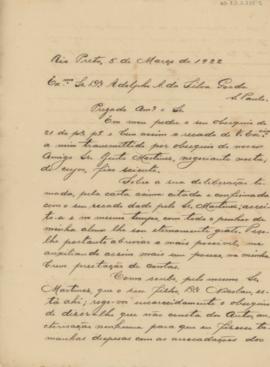 Rio Preto, 5 de Março de 1922
Exmo. Sr. Dr. Adolpho A. da Silva Gordo
S. Paulo.
Prezado Amo. e Sr.
Em meu poder o seu obsequio de
21 do p. p. e bem assim o recado de V. Exa.
a mim transmittido por obsequio do nosso
Amigo Sr. Martinez, negociante nesta,
de cujos fico sciente.
Sobre a sua deliberação to-
mada, pela carta acima citada e confirmada
com o seu recado dado pelo Sr. Martinez, accei-
to-a e ao mesmo tempo, com todo o penhor de
minha alma lhe sou eternamente grato. Pro-
lhe portanto abreviar o mais possivel, me
assim mais em posse na minha
prestação de contas.
Como soube, pelo mesmo Sr.
Martinez, que o seu filho, Dr. es-
ta ahi; rogo-vos encarecidamente o obsequio
de dizer-lhe que não consta dos Autos, au-
torisação nenhuma para que eu fizesse ta-
manhas despezas com as arrecadações dos